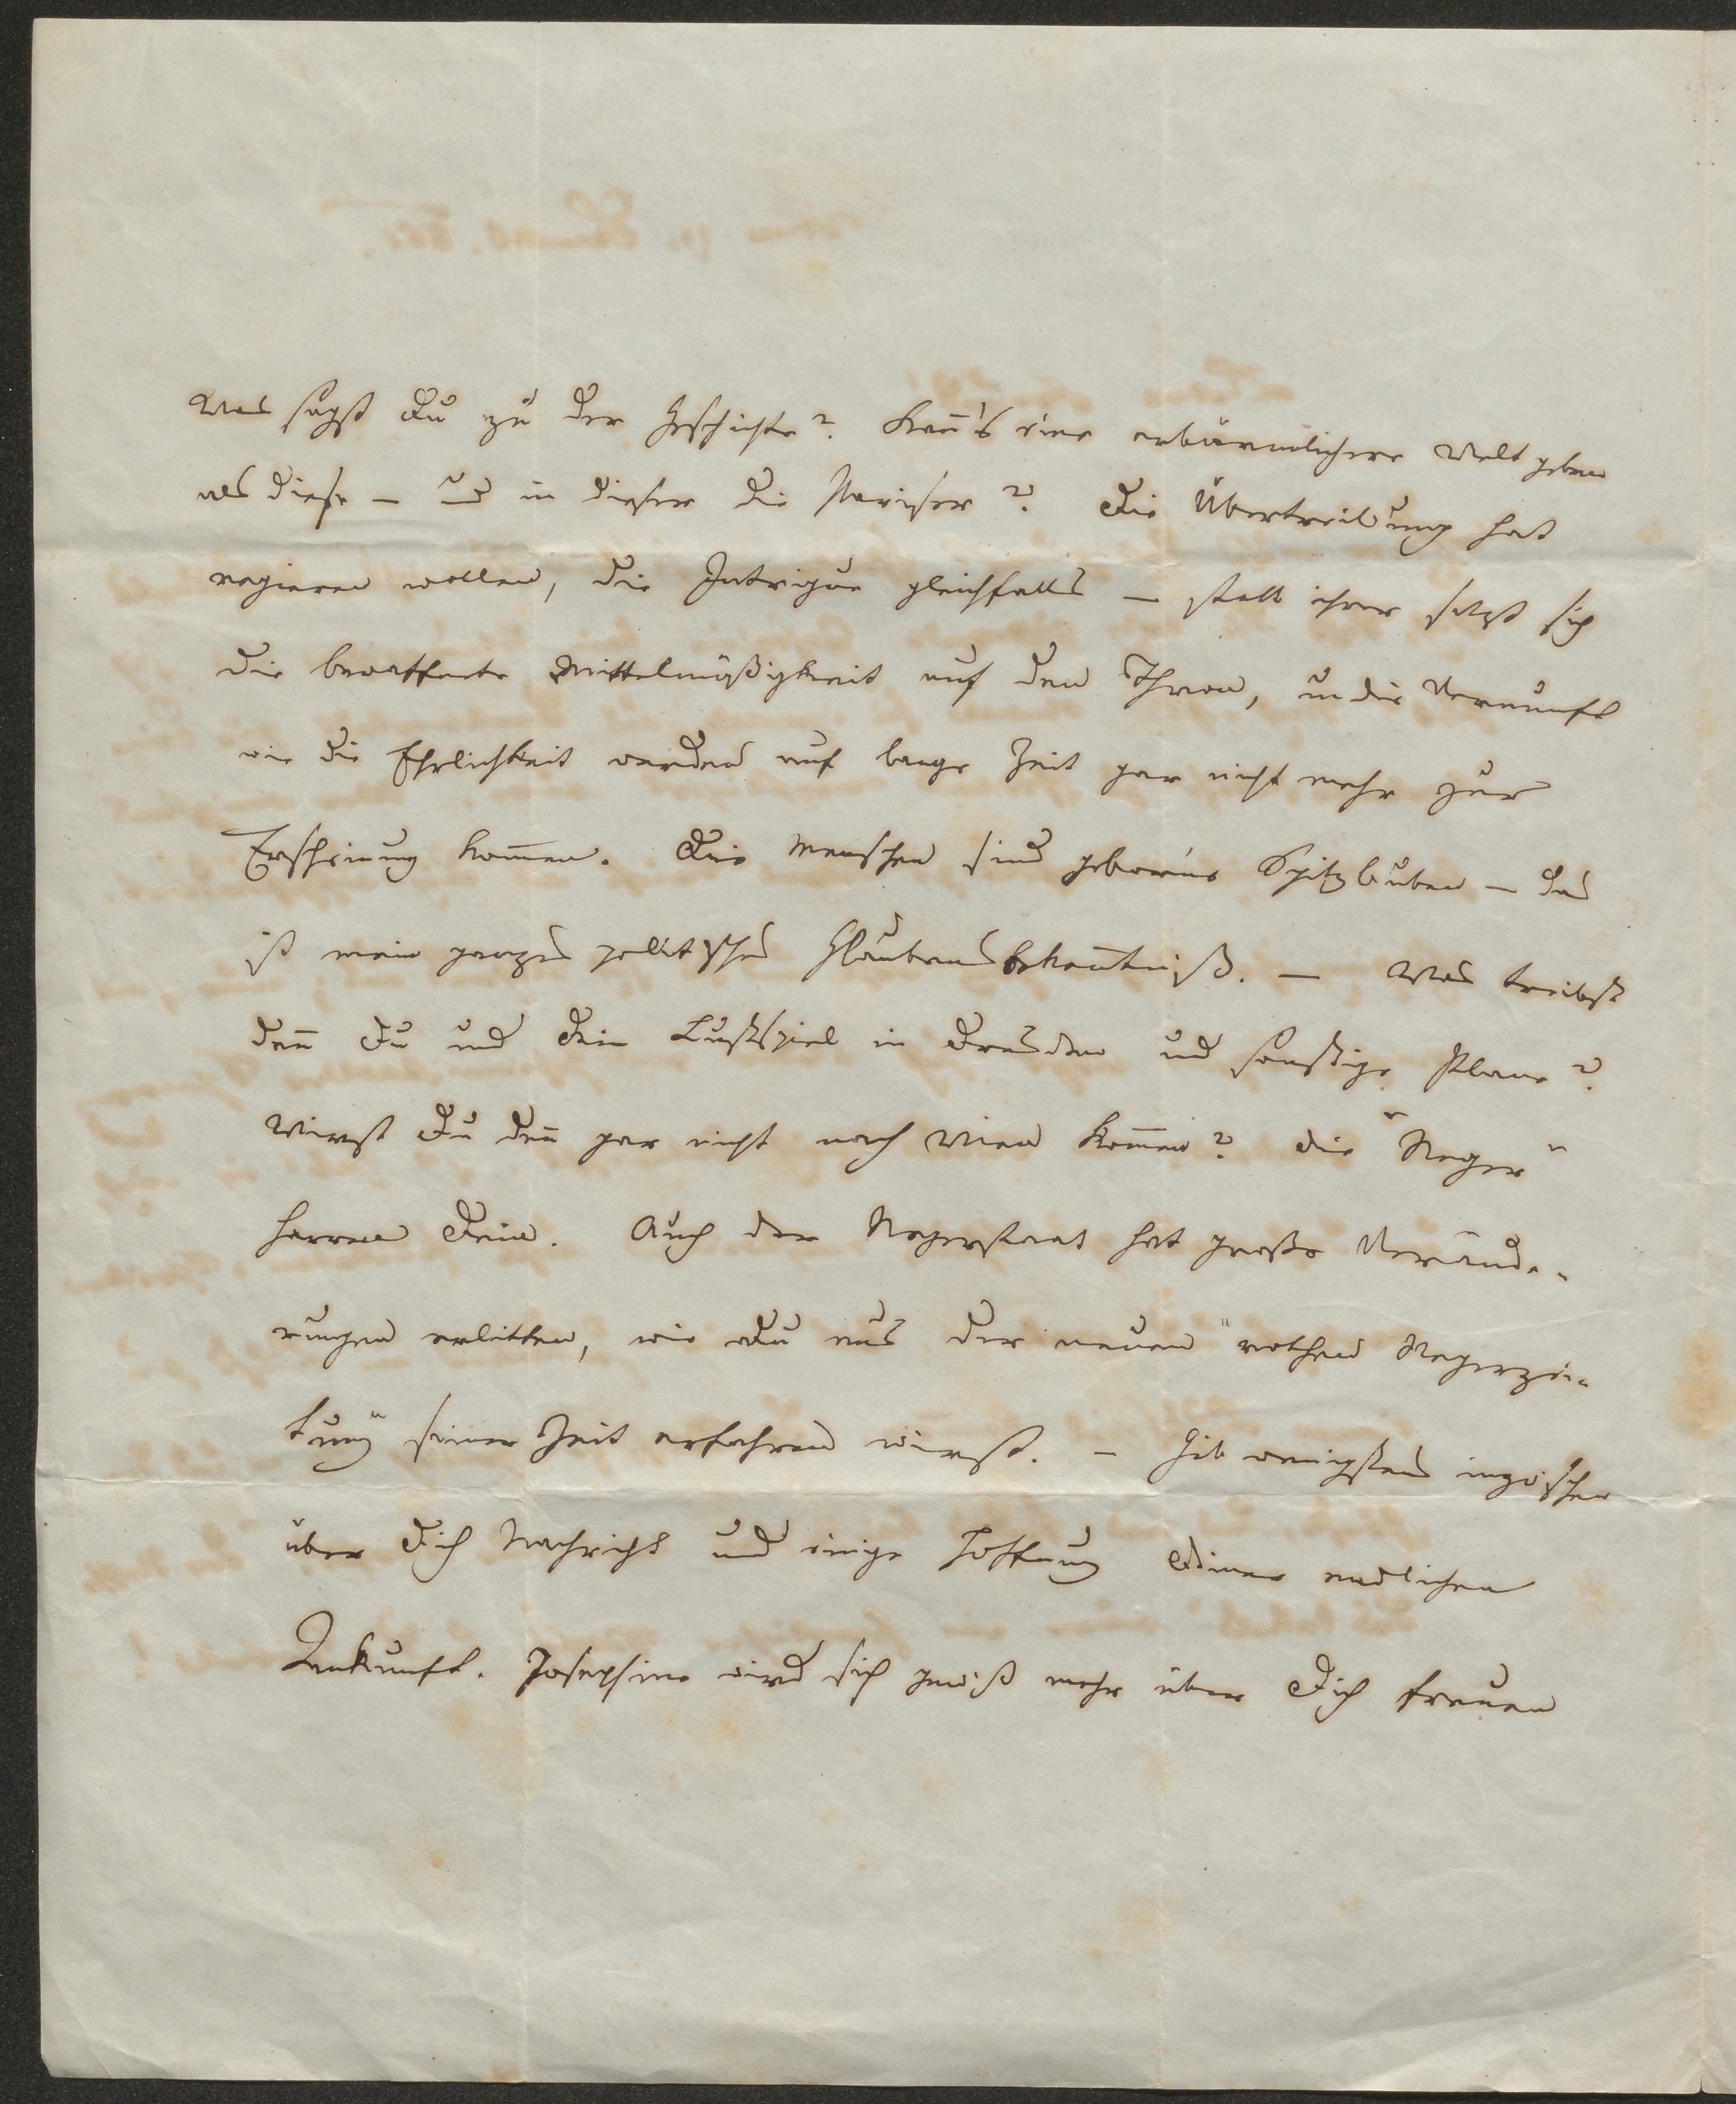 Was sagst Du zu der Geschichte? Kan̄'s eine erbärmlichere Welt geben
als diese – und in dieser die Pariser? Die Übertreibung hat
regieren wollen, die Intrigue gleichfalls – statt ihrer setzt sich
die bewaffnete Mittelmäßigkeit auf den Thron, u die Vernunft
wie die Ehrlichkeit werden auf lange Zeit gar nicht mehr zur
Erscheinung kom̄en. Die Menschen sind geborne Spitzbuben – das
ist mein ganzes politisches Glaubensbekēntniß. – Was treibst
den̄ Du und Dein Lustspiel in Dresden und sonstige Plane?
Wirst Du den̄ gar nicht nach Wien kom̄en? Die "Neger"
harren Dein. Auch der Negerstaat hat große Verände-
rungen erlitten, wie Du aus der neuen "rothen Negerzei-
tung" seiner Zeit erfahren wirst. – Gib wenigstens inzwischen
über Dich Nachricht und einige Hoffnung Deiner endlichen
Ankunft. Josephine wird sich gewiß mehr über Dich freuen